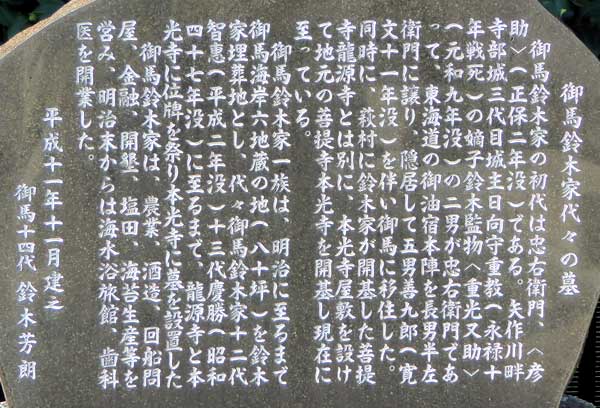 御馬鈴木家代々の墓
御馬鈴木家の初代は忠右衛門、〈彦
助〉（正保二年没）である。矢作川畔
寺部城三代目城主日向守重教（永禄十
年戦死）の嫡子鈴木監物〈重光又助〉
（元和九年没）の二男が忠右衛門であ
って、東海道の御油宿本陣を長男半左
衛門に譲り、隠居して五男善九郎（寛
文十一年没）を伴い御馬に移住した。
同時に、萩村に鈴木家が開基した菩提
寺龍源寺とは別に、本光寺屋敷を設け
て地元の菩提寺本光寺を開基し現在に
至っている。
御馬鈴木家一族は、明治に至るまで
御馬海岸六地蔵の地（八十坪）を鈴木
家埋葬地とし、代々御馬鈴木家十二代
智惠（平成二年没）十三代慶勝（昭和
四十七年没）に至るまで、龍源寺と本
光寺に位牌を祭り本光寺に墓を設置した
御馬鈴木家は、農業、酒造、回船問
屋、金融、開墾、塩田、海苔生産等を
営み、明治末からは海水浴旅館、歯科
医を開業した。
平成十一年十一月建之
御馬十四代 鈴木芳朗